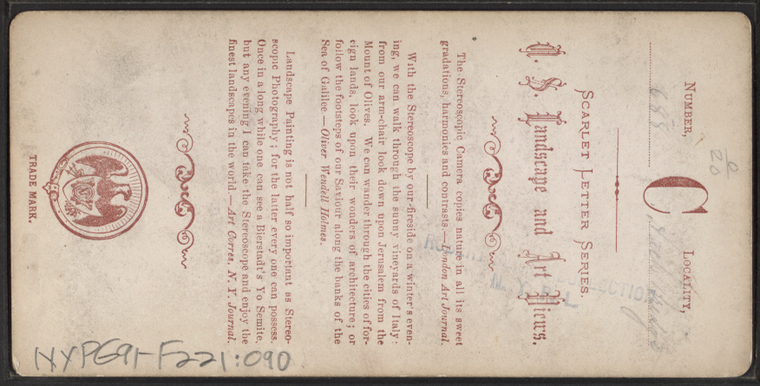 NUMBER, LOCALITY,
688 C
e
20
SCARLET LETTER SERIES.
U. S. Landscape and Art Views.
The Stereoscopic Camera copies nature in all its sweet
gradations, harmonies and contrasts.—London Art Journal.
With the Stereoscope by our fireside on a winter's even-
ing, we can walk through the sunny vineyards of Italy:
from our arm-chair look down upon Jerusalem from the
Mount of Olives. We can wander through the cities of for-
eign lands, look upon their wonders of architecture; or
follow the footsteps of our Saviour along the banks of the
Sea of Galilee—Oliver Wendell Holmes.
Landscape Painting is not half so important as Stereo-
scopic Photography; for the latter every one can possess.
Once in a long while one can see a Bierstadt's Yo Semite,
but any evening I can take the Stereoscope and enjoy the
finest landscapes in the world—Art Corres. N. Y. Journal.
TRADE MARK.
COLLECTION
N. Y. P. L.
NYPG91-F221:090